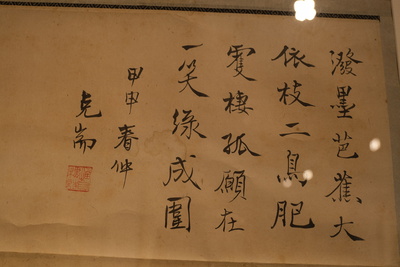 潑墨芭蕉大
依枝二鳥肥
雙棲孤願在
一笑綠成圍
甲申春仲
克耑